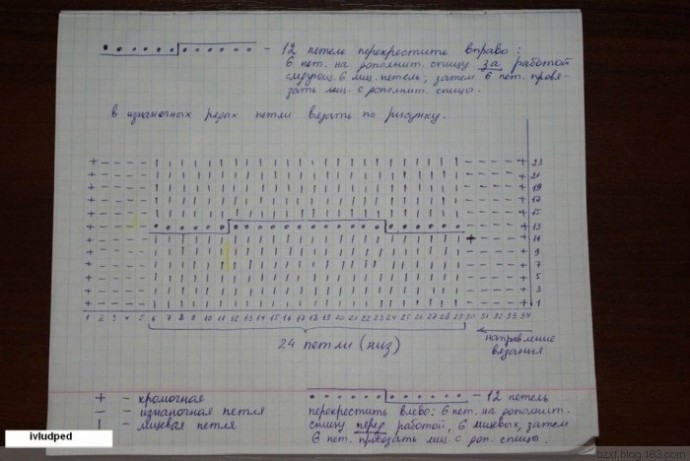 - 12 петель перекрестить вправо:
6 пет. на дополнит. спицу за работой
следующ. 6 лиц. петель, затем 6 пет. провя-
зать лиц. с дополнит. спицы.
в изнаночных рядах петли вязать по рисунку.
23
21
19
17
15
13
11
9
7
5
3
1
1 2 3 4 5 6 7 8 9 10 11 12 13 14 15 16 17 18 19 20 21 22 23 24 25 26 27 28 29 30 31 32 33 34
24 петли (низ)
направление
вязания
+ - кромочная
- - изнаночная петля
| - лицевая петля
- 12 петель
перекрестить влево: 6 пет. на дополнит.
спицу перед работой, 6 лицевых, затем
6 пет. провязать лиц. с доп. спицы.
ivludped
bzxf.blog.163.com